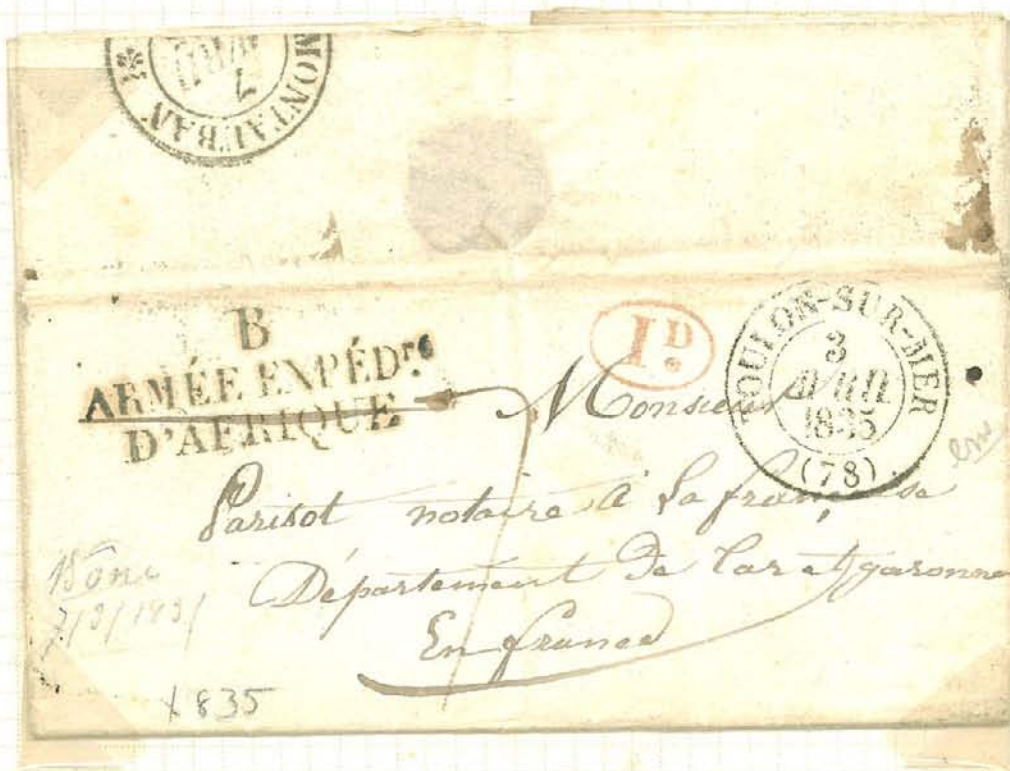 MONTAUBAN
7
AVRIL
B
ARMÉE EXPÉD.re
D'AFRIQUE
1 D.
TOULON-SUR-MER
3
AVRIL
1835
(78)
Monsieur
Parisot notaire à la française
Département de tarn et garonne
En france
Bône
7/3/183
1835